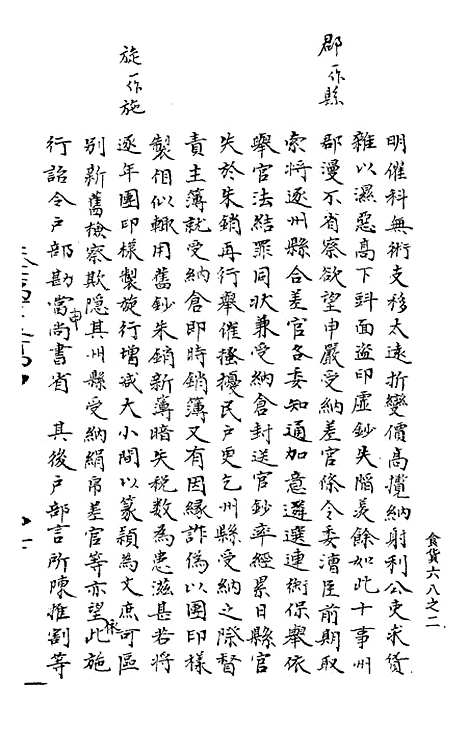 郡一作縣
旋一作施
明催科無術支移太遠折變價高攬納射利公吏求貨
雜以濕惡高下斗面盜印虛鈔失陷羨餘如此十事州
郡漫不省察欲望申嚴受納差官條令委漕臣前期取
索將逐州縣合差官各委知通加意遴選連銜保舉依
舉官法結罪同狀兼受納倉封送官鈔率經累日縣官
失於朱銷再行舉催搔擾民戶更乞州縣受納之際督
責主簿就受納倉即時銷簿又有因緣詐偽以團印樣
製相似輒用舊鈔朱銷新簿暗失稅數為患滋甚若將
逐年團印樣製旋行增減大小間以篆穎為文庶可區
別新舊檢察欺隱其州縣受納絹帛差官等亦望依此施
行詔令戶部勘當申尚書省 其後戶部言所陳推割等
食貨六八之二